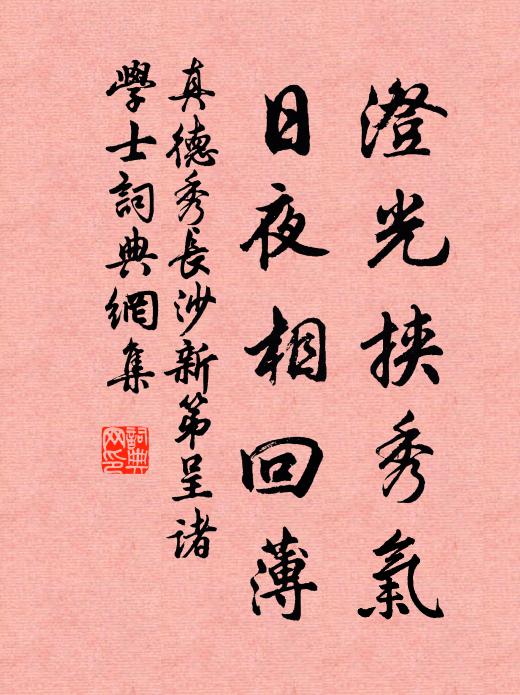 澄光挾秀氣
日夜相回薄
真德秀長沙新第呈諸
學士詞典網集
詞典網印